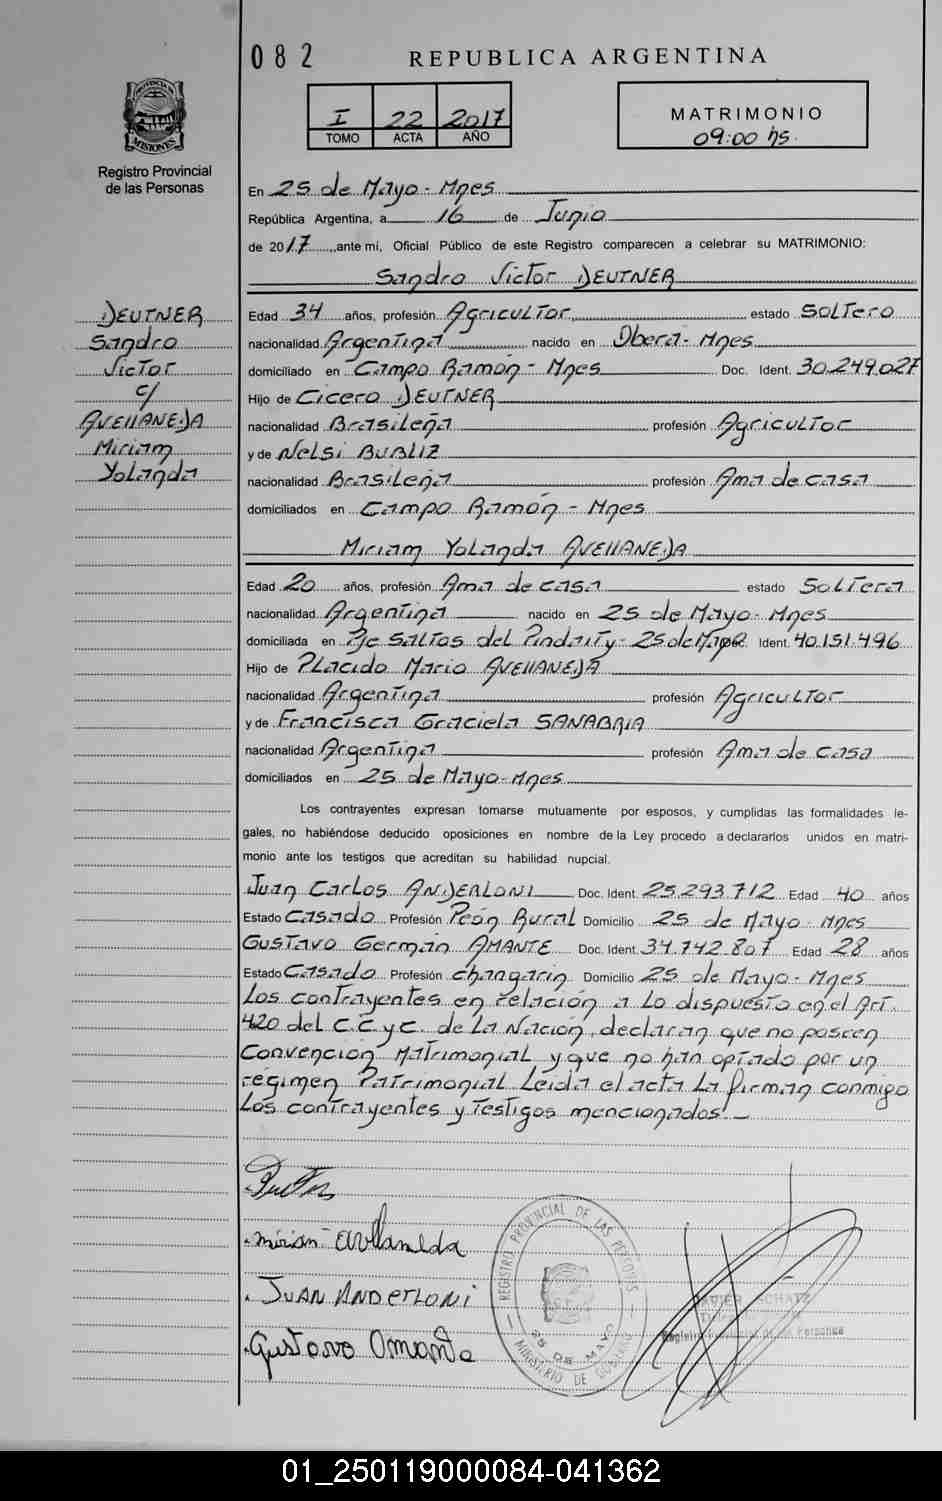 082
REPUBLICA ARGENTINA
PROVINCIA DE
MISIONES
Registro Provincial
de las Personas
I 22 2017
TOMO ACTA AÑO
MATRIMONIO
09:00 hs.
En 25 de Mayo - Mnes
República Argentina, a 16 de Junio
de 2017, ante mí, Oficial Público de este Registro comparecen a celebrar su MATRIMONIO:
Sandro Victor DEUTNER
DEUTNER
Sandro
Victor
c/
AVELLANEDA
Miriam
Yolanda
Edad 34 años, profesión Agricultor estado Soltero
nacionalidad Argentina nacido en Oberá - Mnes
domiciliado en Campo Ramón - Mnes Doc. Ident. 30.249.027
Hijo de Cicero DEUTNER
nacionalidad Brasileña profesión Agricultor
y de Nelsi BUBLIZ
nacionalidad Brasileña profesión Ama de casa
domiciliados en Campo Ramón - Mnes
Miriam Yolanda AVELLANEDA
Edad 20 años, profesión Ama de casa estado Soltera
nacionalidad Argentina nacido en 25 de Mayo - Mnes
domiciliada en Pje Saltos del Pindaity - 25 de Mayo Ident. 40.151.496
Hijo de Placido Mario AVELLANEDA
nacionalidad Argentina profesión Agricultor
y de Francisca Graciela SANABRIA
nacionalidad Argentina profesión Ama de casa
domiciliados en 25 de Mayo - Mnes
Los contrayentes expresan tomarse mutuamente por esposos, y cumplidas las formalidades le-
gales, no habiéndose deducido oposiciones en nombre de la Ley procedo a declararlos unidos en matri-
monio ante los testigos que acreditan su habilidad nupcial.
Juan Carlos ANDERLONI Doc. Ident. 25.293.712 Edad 40 años
Estado Casado Profesión Peón Rural Domicilio 25 de Mayo - Mnes
Gustavo Germán AMANTE Doc. Ident. 34.742.807 Edad 28 años
Estado Casado Profesión changarin Domicilio 25 de Mayo - Mnes
Los contrayentes en relación a lo dispuesto en el Art.
420 del C.C y C. de la Nación, declaran que no poseen
Convención Matrimonial y que no han optado por un
regimen Patrimonial Leida el acta la firman conmigo
Los contrayentes y testigos mencionados. -
miriam avellaneda
JUAN ANDERLONI
Gustavo Amante
REGISTRO PROVINCIAL DE LAS PERSONAS
25 DE MAYO
MINISTERIO DE GOBIERNO
JAVIER SCHATZ
Registro Provincial de las Personas
01_250119000084-041362